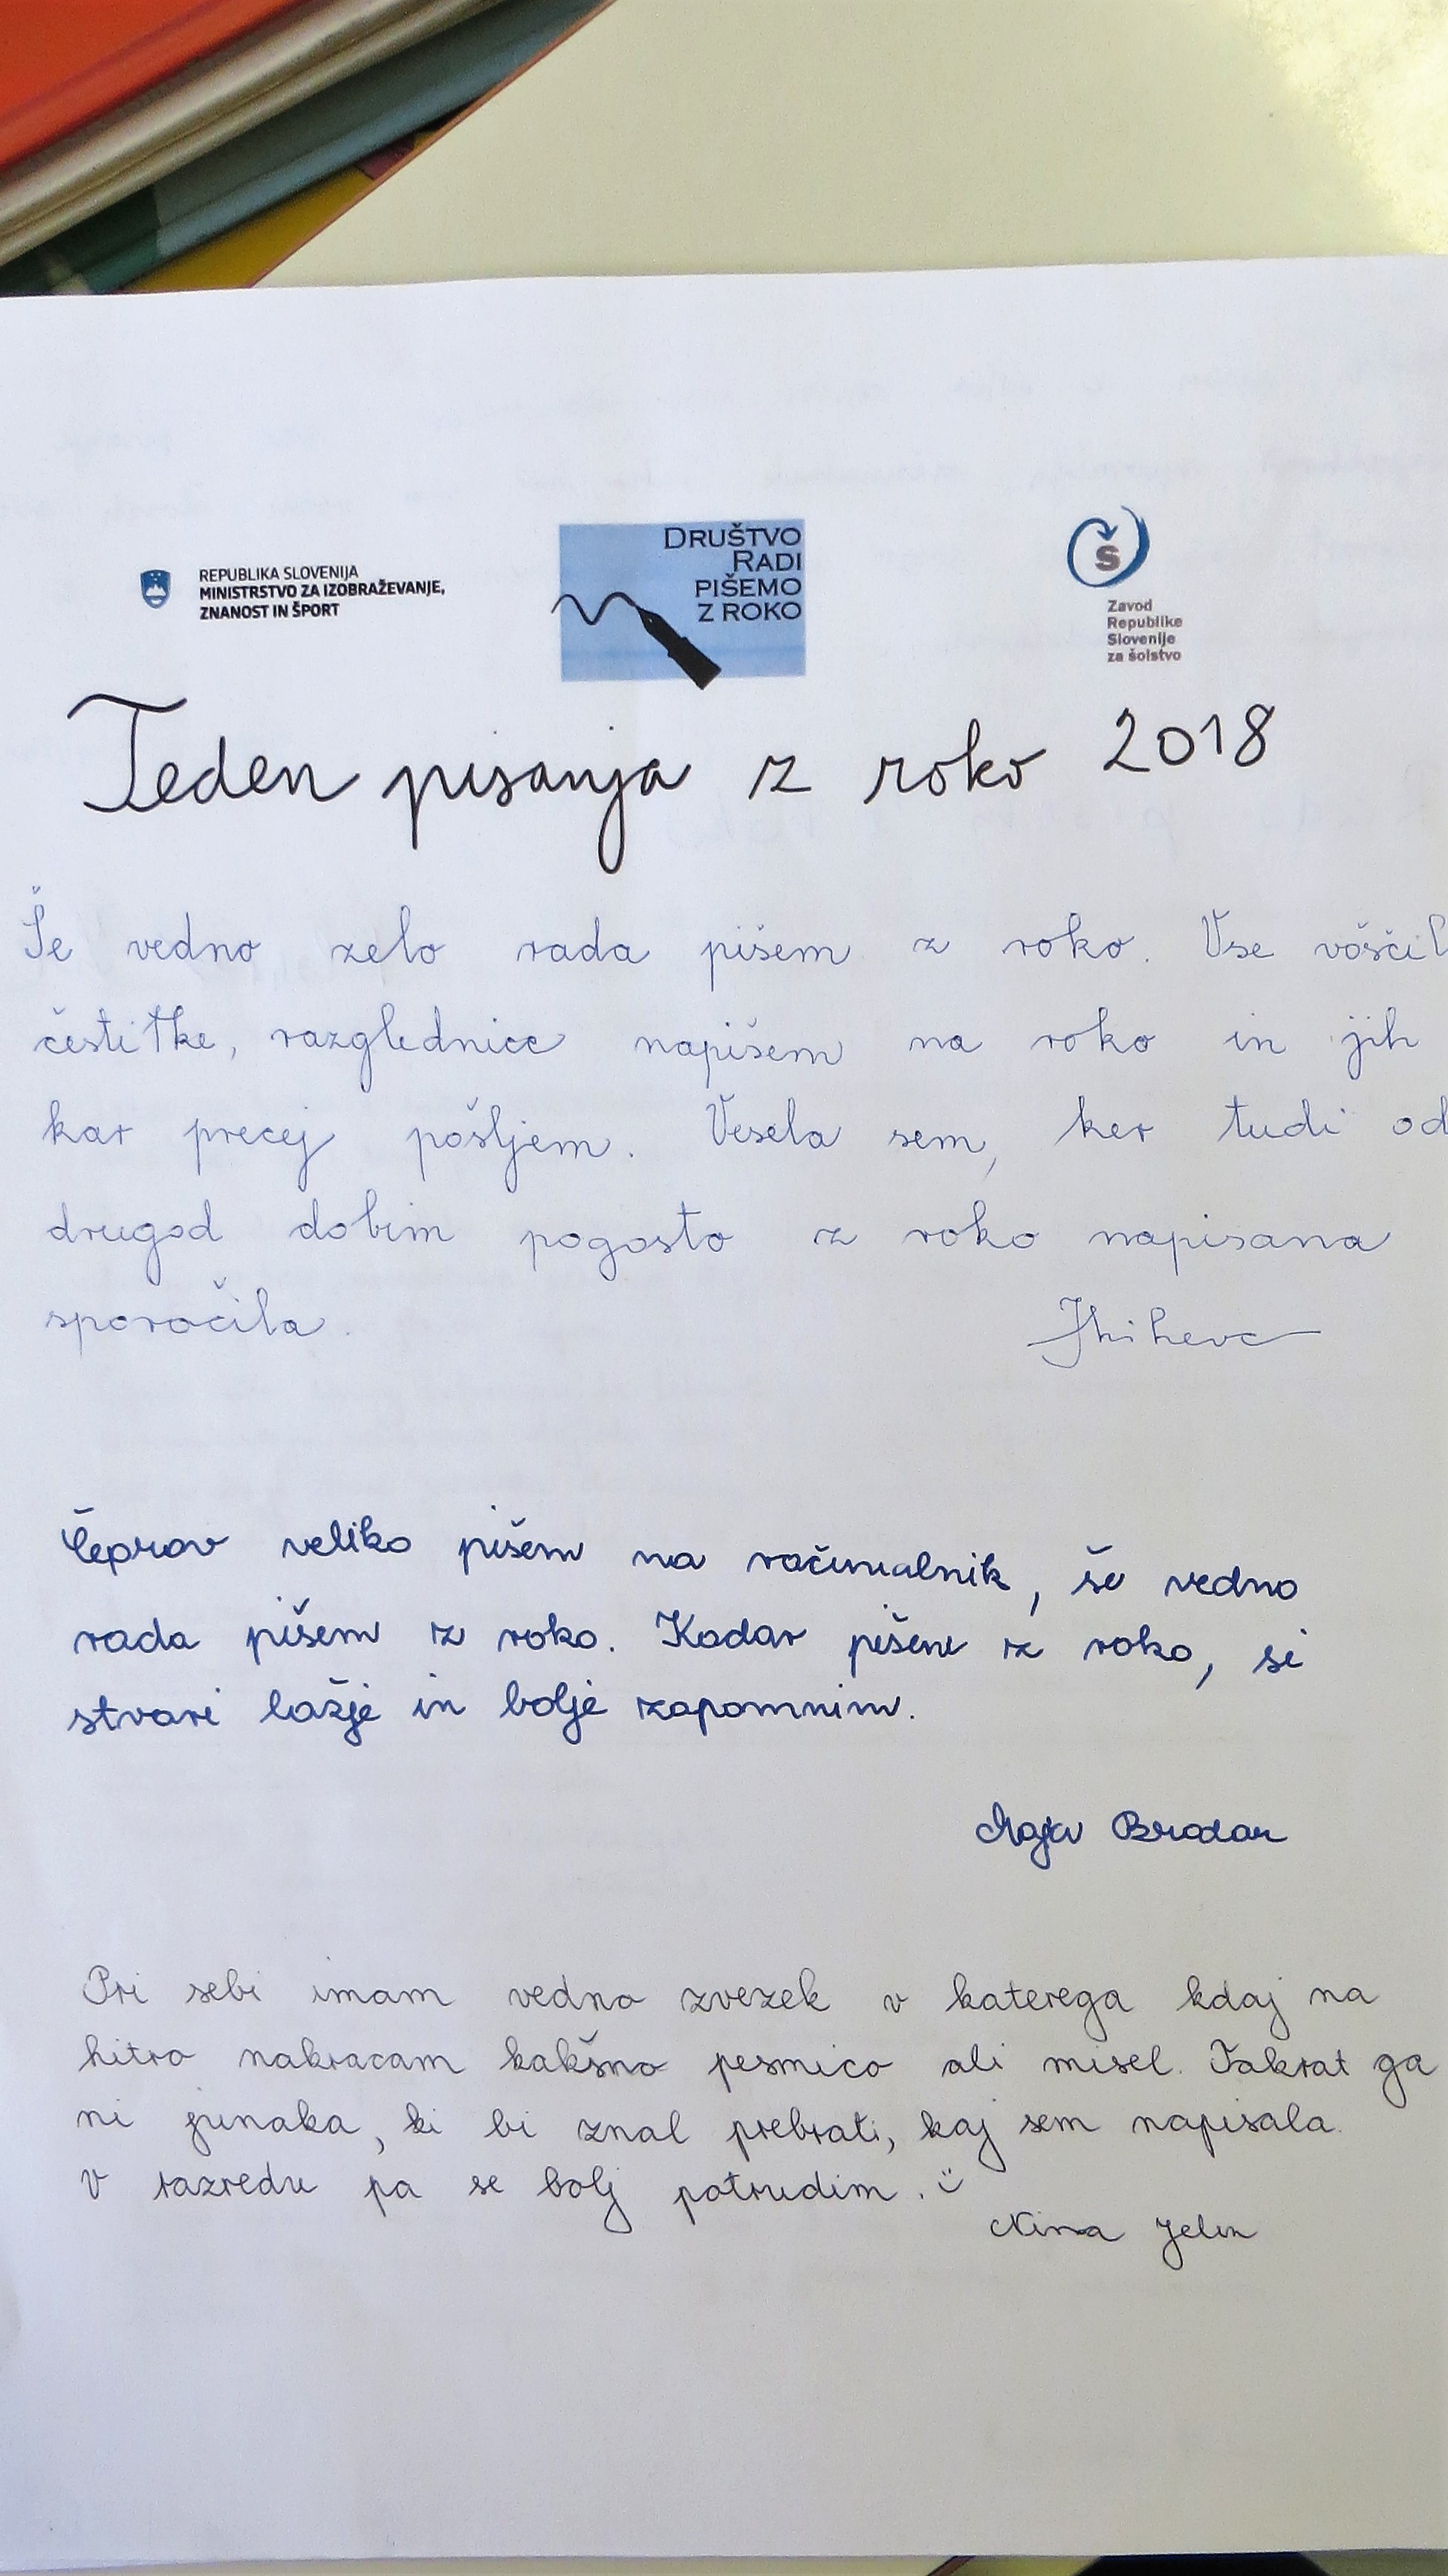 REPUBLIKA SLOVENIJA
MINISTRSTVO ZA IZOBRAŽEVANJE,
ZNANOST IN ŠPORT
DRUŠTVO
RADI
PIŠEMO
Z ROKO
Š
Zavod
Republike
Slovenije
za šolstvo
Teden pisanja z roko 2018
Še vedno zelo rada pišem z roko. Vse voščil
čestitke, razglednice napišem na roko in jih
kar precej pošljem. Vesela sem, ker tudi od
drugod dobim pogosto z roko napisana
sporočila.
Čeprav veliko pišem na računalnik, še vedno
rada pišem z roko. Kadar pišem z roko, si
stvari lažje in bolje zapomnim.
Maja Brodar
Pri sebi imam vedno zvezek v katerega kdaj na
hitro nakracam kakšno pesmico ali misel. Takrat ga
ni junaka, ki bi znal prebrati, kaj sem napisala.
V razredu pa se bolj potrudim. :)
Nina